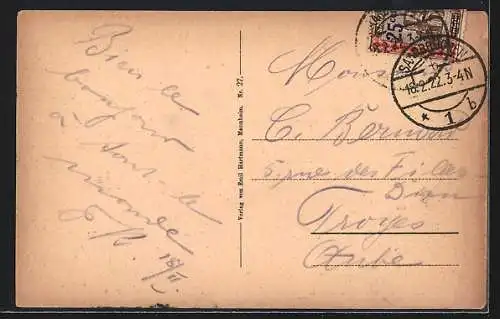 Bien le
bonjour
à tout le
monde
18/II
Verlag von Emil Hartmann, Mannheim. Nr. 27.
SAARBRÜCKEN
18.2.22.3-4N
* 1 b
C. Bernard
5 rue des Filles
Dieu
Troyes
Aube